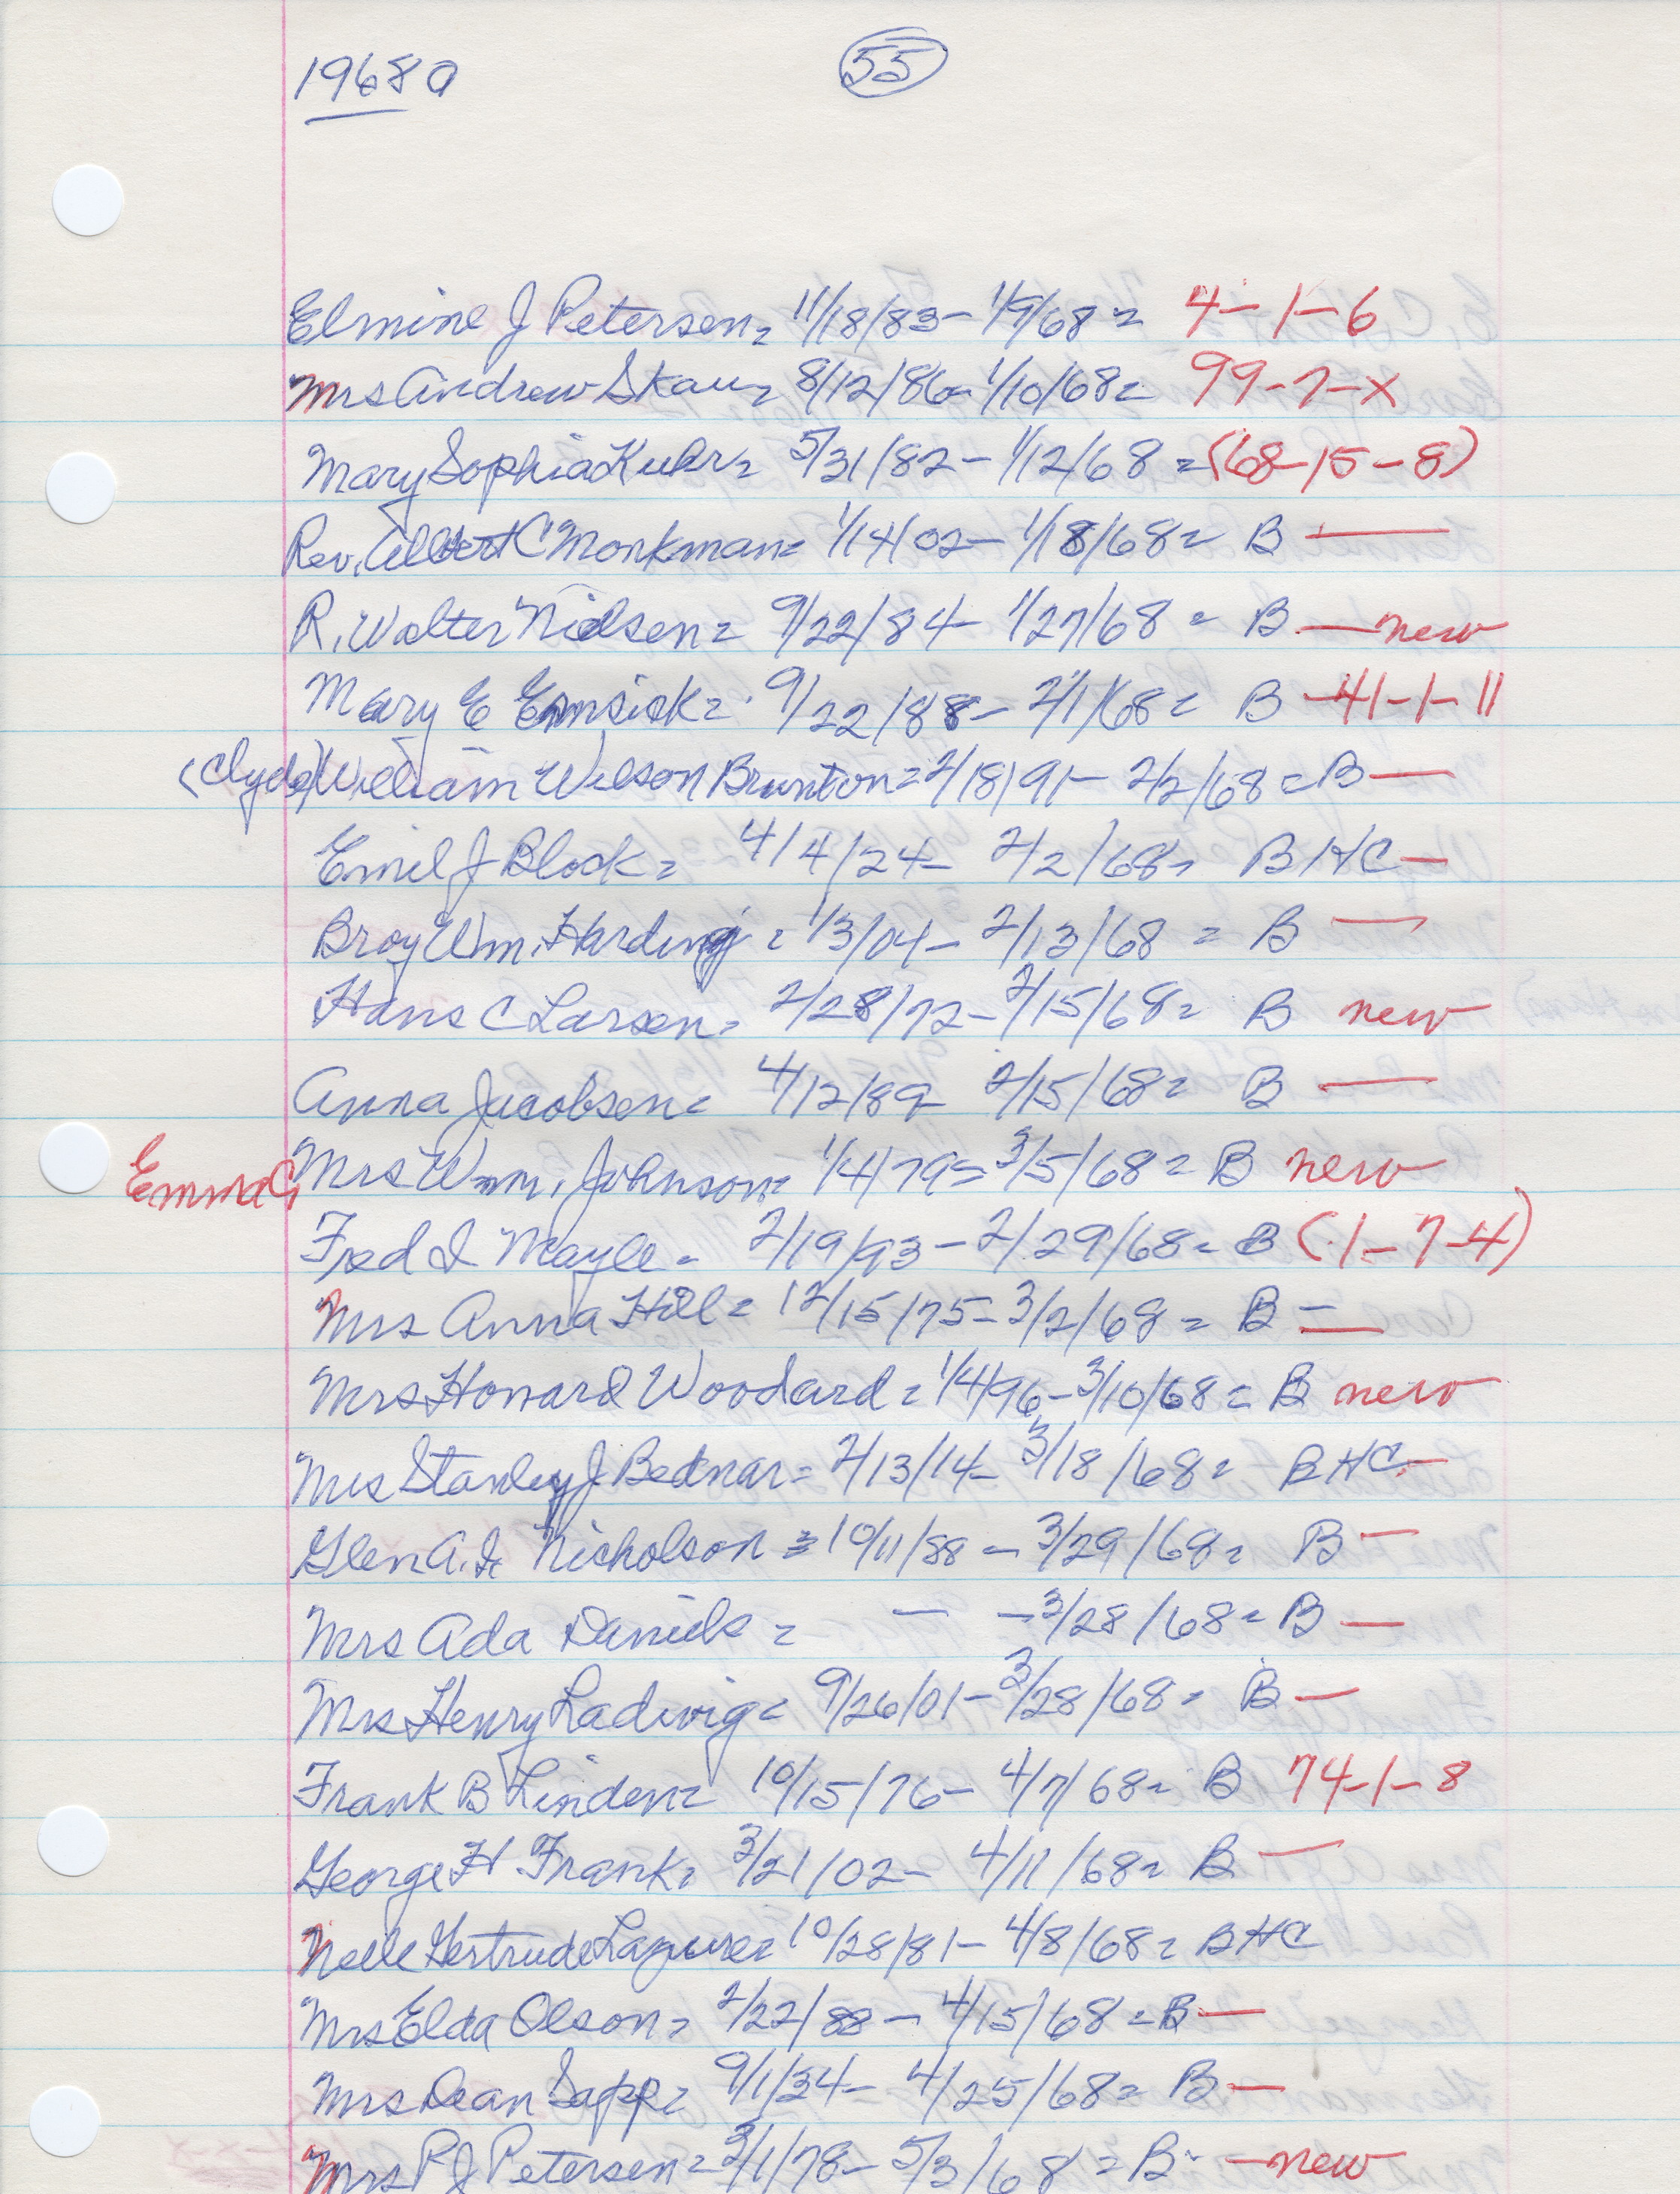 1968 a
55
Elmine J Petersen = 11/18/83 - 1/9/68 = 4-1-6
Mrs Andrew Skau = 8/12/86 - 1/10/68 = 99-7-X
Mary Sophia Kuhr = 5/31/82 - 1/12/68 = (68-15-8)
Rev. Albert C Monkman = 1/14/02 - 1/18/68 = B —
R. Walter Nielsen = 9/22/84 - 1/27/68 = B — new
Mary E = 9/22/88 - 2/1/68 = B - 41-1-11
(Clyde) William Wilson Brunton = 2/18/91 - 2/2/68 = B —
Emil J Block = 4/4/24 - 2/2/68 = B HC —
Broy Wm. Harding = 1/3/04 - 2/13/68 = B —
Hans C Larsen = 2/28/72 - 2/15/68 = B new
Anna Jacobsen = 4/12/89 - 2/15/68 = B —
Emma C Mrs Wm. Johnson = 1/4/79 = 3/5/68 = B new
Fred I Mayle = 2/19/93 - 2/29/68 = B (1-7-4)
Mrs Anna Hill = 12/15/75 - 3/2/68 = B —
Mrs Howard Woodard = 1/4/96 - 3/10/68 = B new
Mrs Stanley J Bednar = 2/13/14 - 3/18/68 = B HC —
Glen A. Nicholson = 10/11/88 - 3/29/68 = B —
Mrs Ada Daniels = — - 3/28/68 = B —
Mrs Henry Ladwig = 9/26/01 - 3/28/68 = B —
Frank B Linden = 10/15/76 - 4/7/68 = B 74-1-8
George H Frank = 3/21/02 - 4/11/68 = B —
Nelle Gertrude = 10/28/81 - 4/8/68 = B HC
Mrs Elda Olson = 2/22/88 - 4/15/68 = B —
Mrs Dean Sapp = 9/1/34 - 4/25/68 = B —
Mrs P J Petersen = 3/1/78 - 5/3/68 = B — new